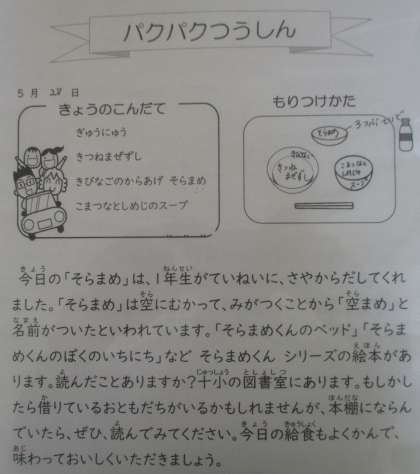 パクパクつうしん
5月 28 日
きょうのこんだて
ぎゅうにゅう
きつねまぜずし
きびなごのからあげ そらまめ
こまつなとしめじのスープ
もりつけかた
そらまめ
きつね
まぜずし
こまつなと
しめじの
スープ
今日の「そらまめ」は、1年生がていねいに、さやからだしてくれ
ました。「そらまめ」は空にむかって、みがつくことから「空まめ」と
名前がついたといわれています。「そらまめくんのベッド」「そらま
めくんのぼくのいちにち」など そらまめくん シリーズの絵本があ
ります。読んだことありますか？十小の図書室にあります。もしかし
たら借りているおともだちがいるかもしれませんが、本棚にならん
でいたら、ぜひ、読んでみてください。今日の給食もよくかんで、
味わっておいしくいただきましょう。